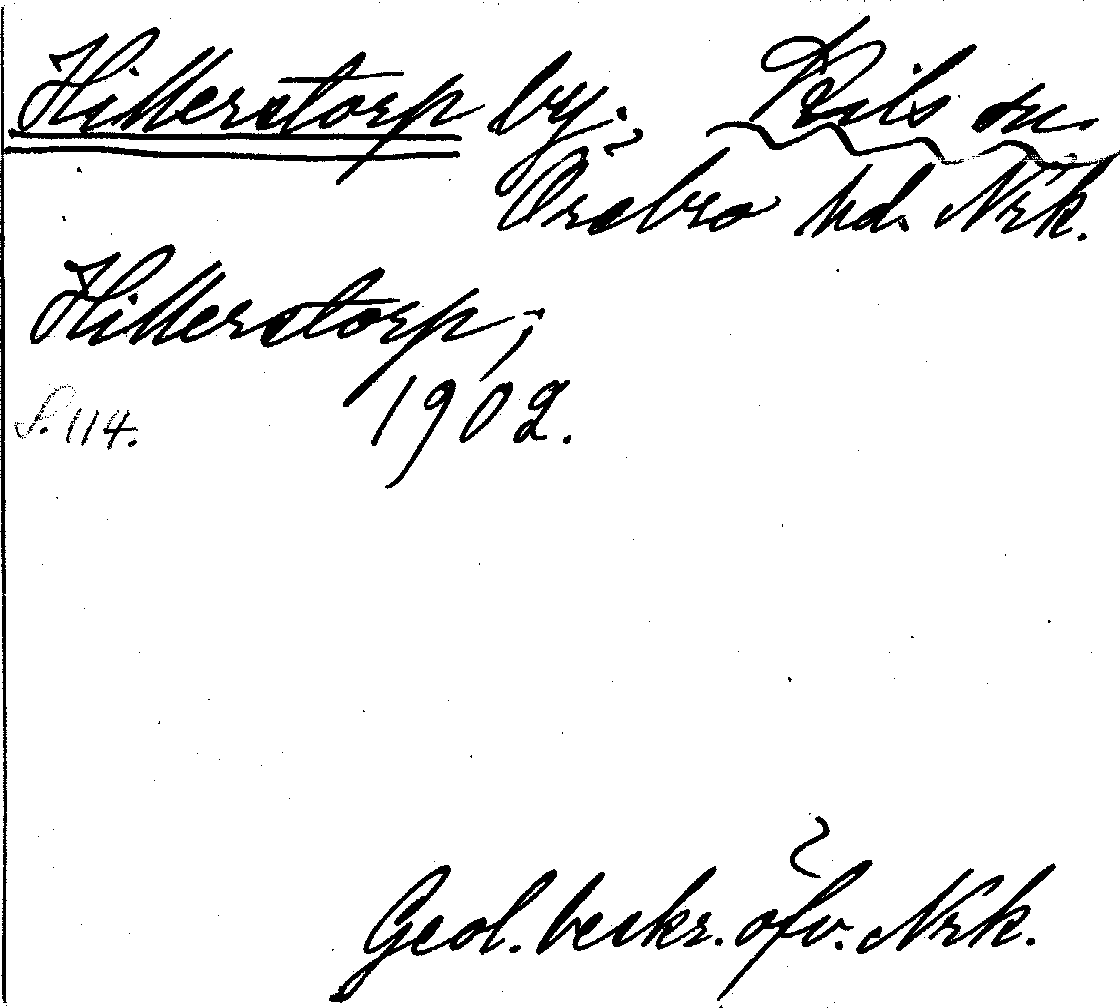 Hillerstorp by; Kils sn.
Örebro hd. Nrk.
Hillerstorp;
S. 114. 1902.
Geol. beskr. öfv. Nrk.